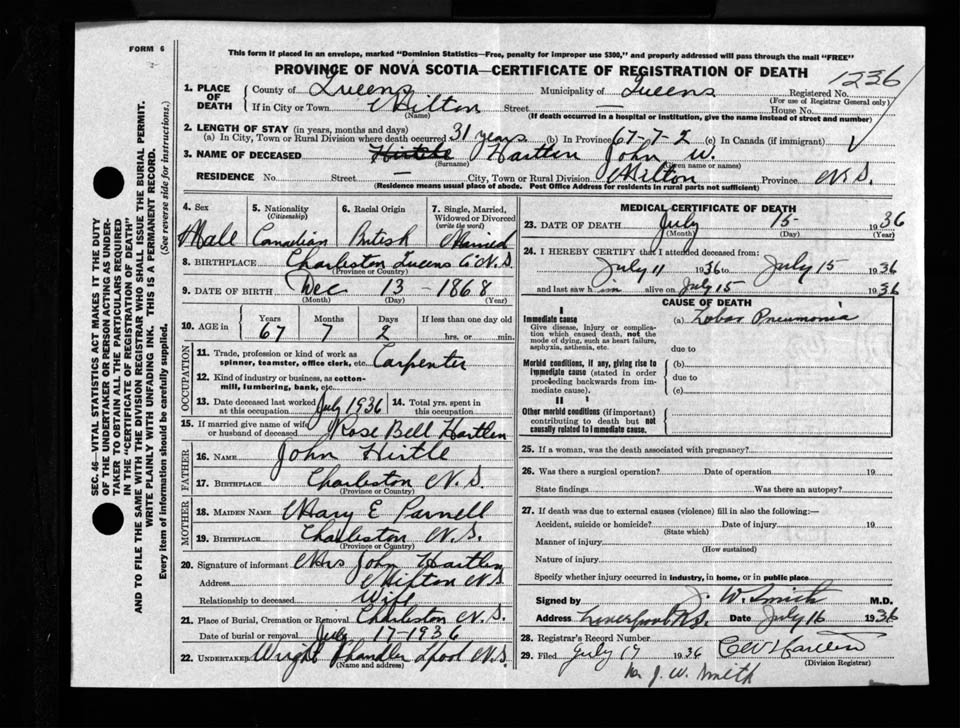 FORM 6
This form if placed in an envelope, marked "Dominion Statistics—Free, penalty for improper use $300," and properly addressed will pass through the mail "FREE"
PROVINCE OF NOVA SCOTIA—CERTIFICATE OF REGISTRATION OF DEATH
1236
1. PLACE OF DEATH County of Queens Municipality of Queens Registered No.
(For use of Registrar General only)
If in City or Town Milton Street — House No.
(Name) (If death occurred in a hospital or institution, give the name instead of street and number)
2. LENGTH OF STAY (in years, months and days)
(a) In City, Town or Rural Division where death occurred 31 years (b) In Province 67-7-2 (c) In Canada (if immigrant)
3. NAME OF DECEASED Hirtle Hartlen John W.
(Surname) (Given name or names)
RESIDENCE No. Street — City, Town or Rural Division Milton Province N.S.
(Residence means usual place of abode. Post Office Address for residents in rural parts not sufficient)
4. Sex Male
5. Nationality (Citizenship) Canadian
6. Racial Origin British
7. Single, Married, Widowed or Divorced (write the word) Married
8. BIRTHPLACE Charleston Queens Co N.S.
(Province or Country)
9. DATE OF BIRTH Dec 13 - 1868
(Month) (Day) (Year)
10. AGE in Years Months Days If less than one day old
67 7 2 hrs. or min.
OCCUPATION
11. Trade, profession or kind of work as spinner, teamster, office clerk, etc. Carpenter
12. Kind of industry or business, as cotton-mill, lumbering, bank, etc.
13. Date deceased last worked at this occupation July 1936 14. Total yrs. spent in this occupation
15. If married give name of wife or husband of deceased Rose Bell Hartlen
FATHER
16. NAME John Hirtle
17. BIRTHPLACE Charleston N.S.
(Province or Country)
MOTHER
18. MAIDEN NAME Mary E Parnell
19. BIRTHPLACE Charleston N.S.
(Province or Country)
20. Signature of informant Mrs John Hartlen
Address Milton N.S
Relationship to deceased Wife
21. Place of Burial, Cremation or Removal Charleston N.S.
Date of burial or removal July 17-1936
22. UNDERTAKER Wright Chandler Lpool N.S.
(Name and address)
MEDICAL CERTIFICATE OF DEATH
23. DATE OF DEATH July 15- 1936
(Month) (Day) (Year)
24. I HEREBY CERTIFY that I attended deceased from:
July 11 1936 to July 15 1936
and last saw h im alive on July 15 1936
CAUSE OF DEATH
I
Immediate cause (a) Lobar Pneumonia
Give disease, injury or complication which caused death, not the mode of dying, such as heart failure, asphyxia, asthenia, etc.
due to
Morbid conditions, if any, giving rise to immediate cause (stated in order proceeding backwards from immediate cause).
(b)
due to
(c)
II
Other morbid conditions (if important) contributing to death but not causally related to immediate cause.
25. If a woman, was the death associated with pregnancy?
26. Was there a surgical operation? Date of operation 19
State findings Was there an autopsy?
27. If death was due to external causes (violence) fill in also the following:—
Accident, suicide or homicide? Date of injury 19
(State which)
Manner of injury
(How sustained)
Nature of injury
Specify whether injury occurred in industry, in home, or in public place
Signed by J. W. Smith M.D.
Address Liverpool N.S. Date July 16 1936
28. Registrar's Record Number
29. Filed July 17 1936
(Division Registrar)
per J. W. Smith
SEC. 46—VITAL STATISTICS ACT MAKES IT THE DUTY
OF THE UNDERTAKER OR PERSON ACTING AS UNDER-
TAKER TO OBTAIN ALL THE PARTICULARS REQUIRED
IN THE "CERTIFICATE OF REGISTRATION OF DEATH"
AND TO FILE THE SAME WITH THE DIVISION REGISTRAR WHO SHALL ISSUE THE BURIAL PERMIT.
WRITE PLAINLY WITH UNFADING INK. THIS IS A PERMANENT RECORD.
Every item of information should be carefully supplied. (See reverse side for instructions.)